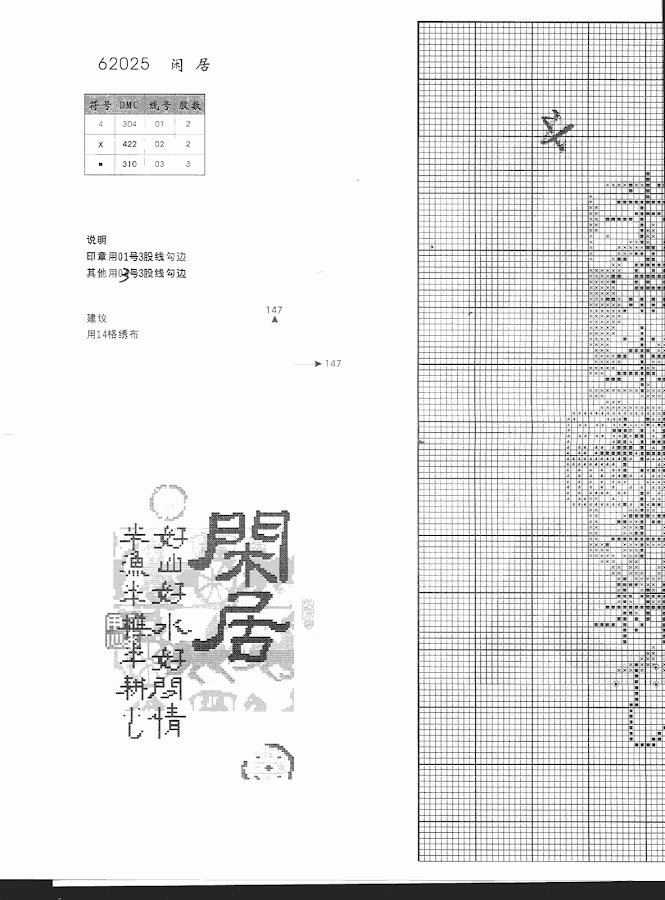 62025 闲 居
符号 DMC 线号 股数
4 304 01 2
X 422 02 2
▪ 310 03 3
说明
印章用01号3股线勾边
其他用03号3股线勾边
建议
用14格绣布
147
147
閑居
好山好水好閑情
半漁半樵半耕心